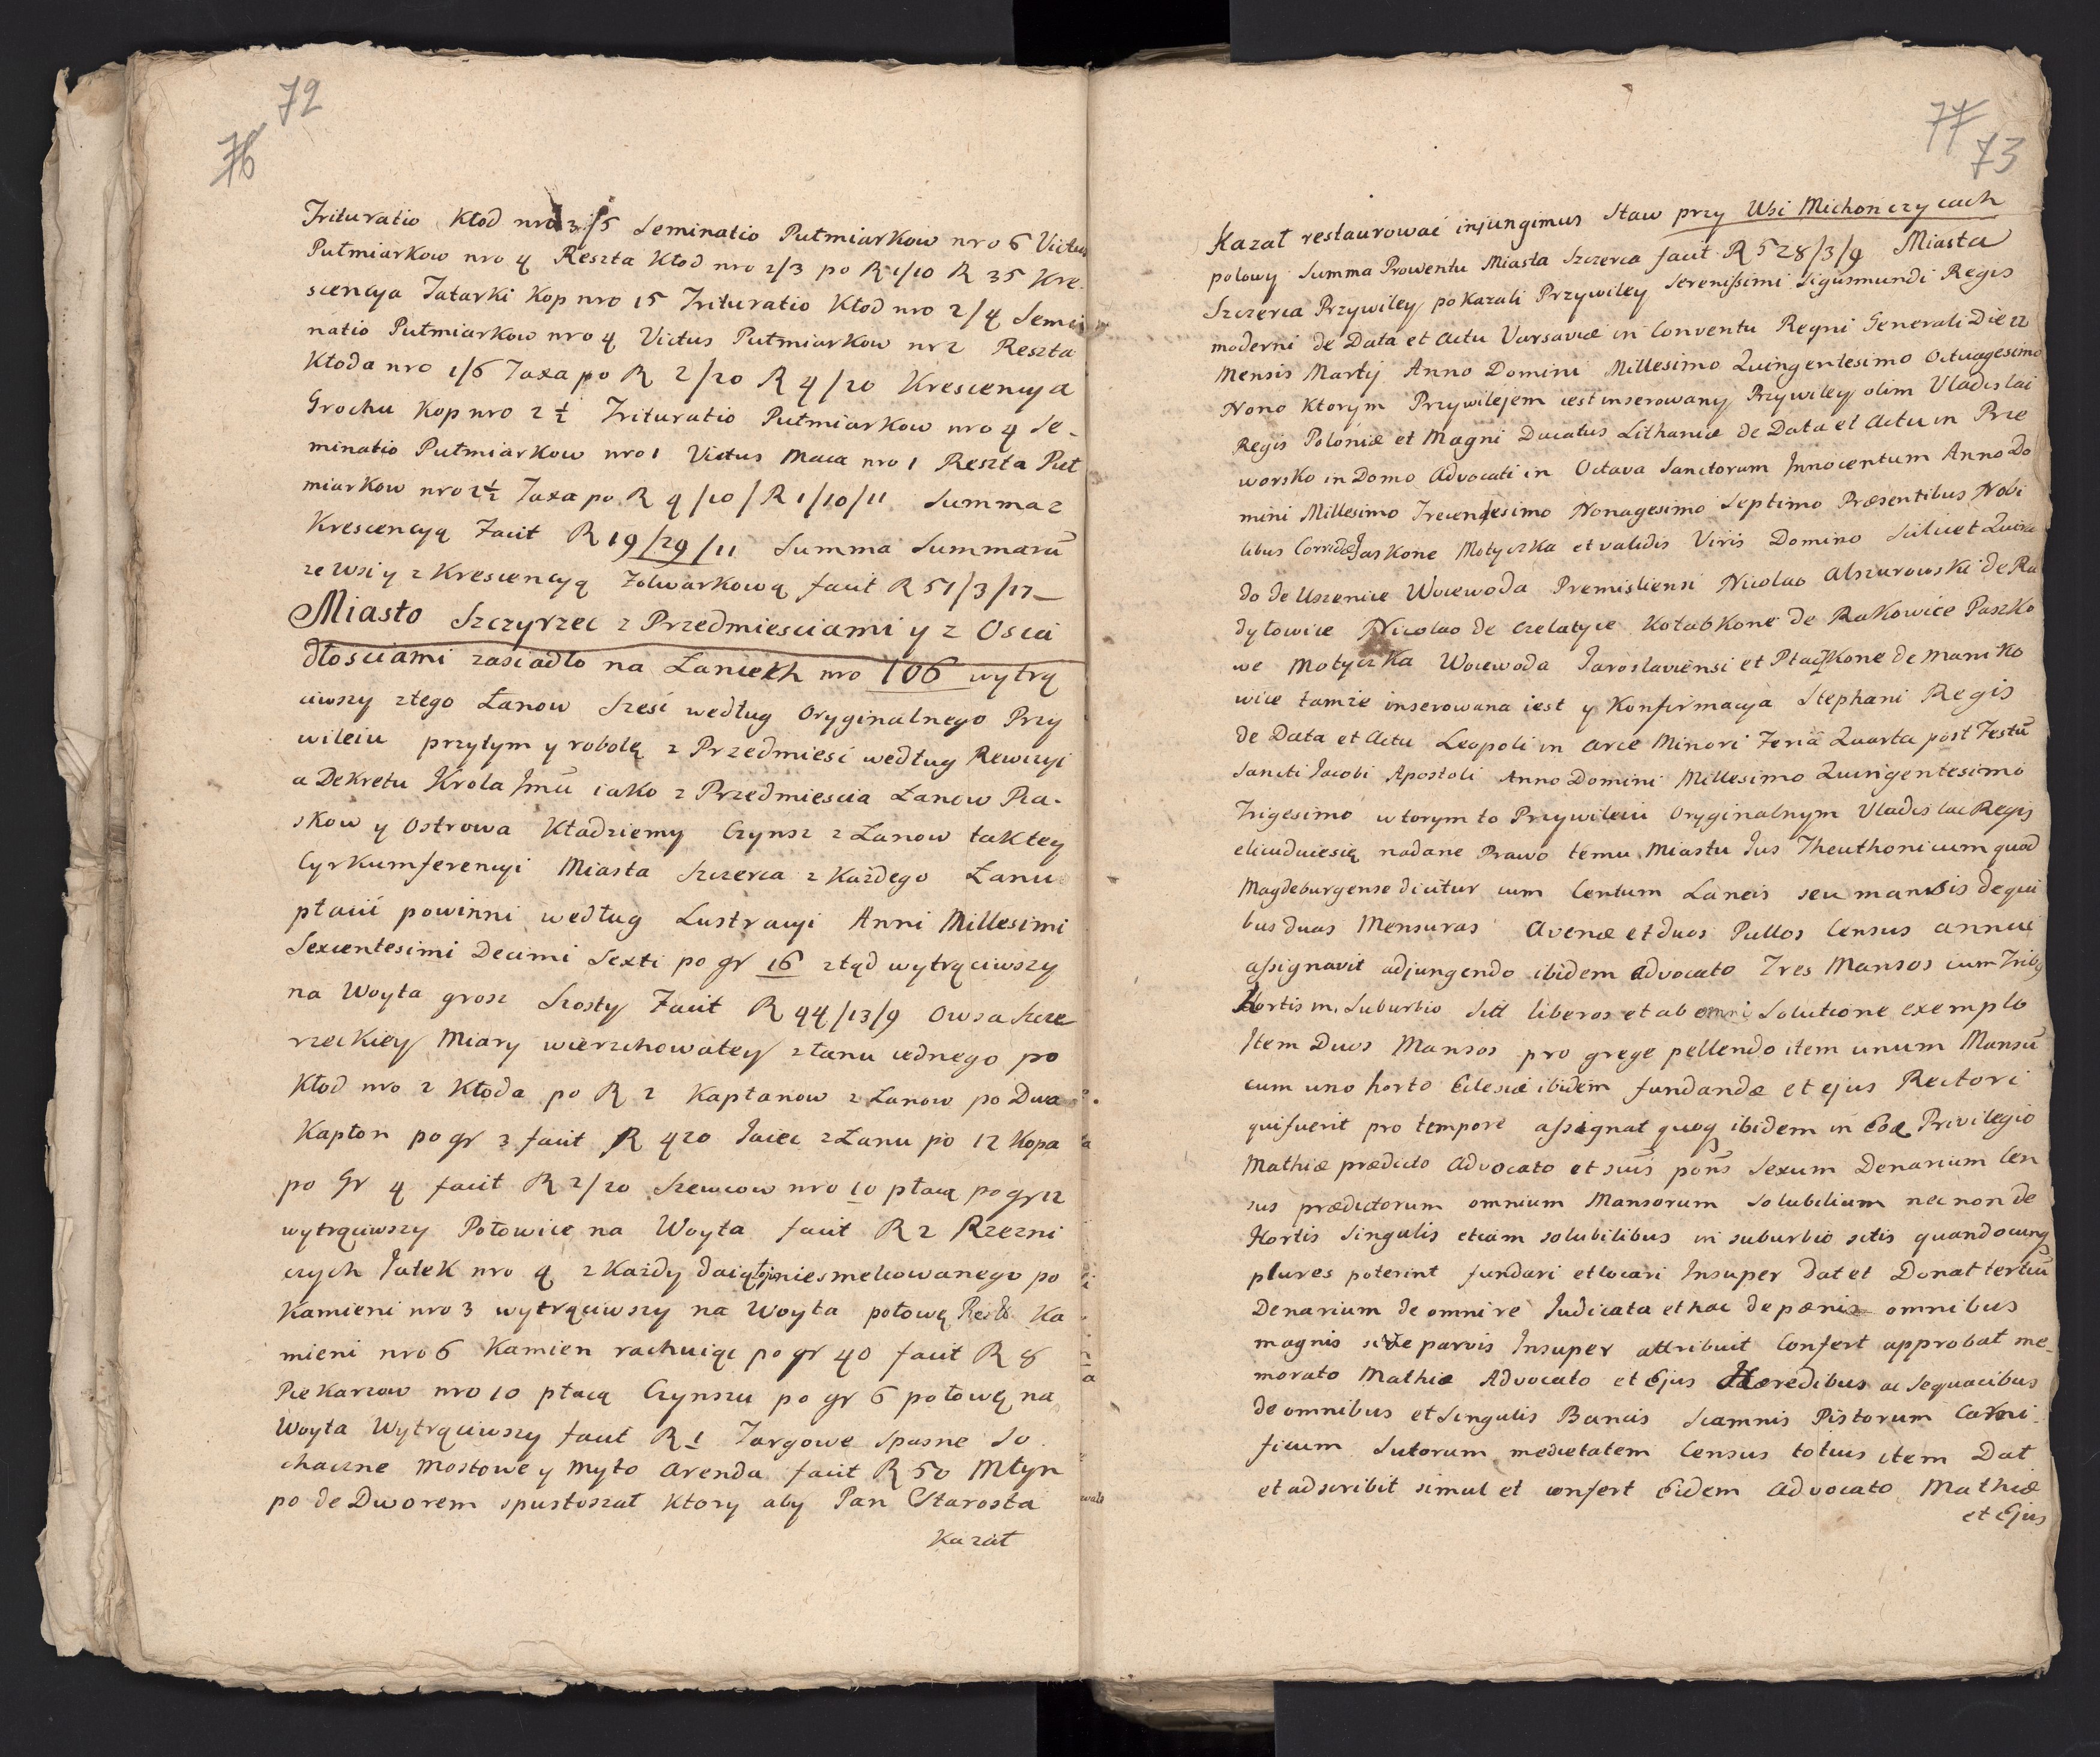 72
76
Trituratio Kłod nro 3/5 Seminatio Pułmiarkow nro 6 Victus
Pułmiarkow nro 4 Reszta Kłod nro 2/3 po R 1/10 R 35 Kre-
scencya Tatarki Kop nro 15 Trituratio Kłod nro 2/4 Semi
natio Pułmiarkow nro 4 Victus Pułmiarkow nr 2 Reszta
Kłoda nro 1/6 Taxa po R 2/20 R 4/20 Krescencya
Grochu Kop nro 2 ½ Trituratio Pułmiarkow nro 4 Se-
minatio Pułmiarkow nro 1 Victus Maca nro 1 Reszta Puł
miarkow nro 2½ Taxa po R 4/10/R 1/10/11 Summa z
Krescencyą Facit R 19/29/11 Summa Summarū
ze Wsi y z Krescencyą Folwarkową facit R 51/3/17
Miasto Szczyrzec z Przedmiesciami y z Osia
dłosciami zasiadło na Łaniech nro 106 wytrą
ciwszy z tego Łanow Szesć według Oryginalnego Przy
wileiu przytym y robotę z Przedmiesć według Rewizyi
a Dekretu Krola Jmū iako z Przedmiescia Łanow Pia-
skow y Ostrowa Kładziemy Czynsz z Łanow taktey
Cyrkumferencyi Miasta Szczerca z Każdego Łanu
płacić powinni według Lustracyi Anni Millesimi
Sexcentesimi Decimi Sexti po gr 16 ztąd wytrąciwszy
na Woyta grosz Szosty Facit R 94/13/9 Owsa Szcze
rzeckiey Miary wierzchowatey z łanu iednego po
Kłod nro 2 Kłoda po R 2 Kapłanow z Łanow po Dwa
Kapłon po gr 3 facit R 420 Jaiec z Łanu po 12 Kopa
po Gr 4 facit R 2/20 Szewcow nro 10 płacą po gr 12
wytrąciwszy Połowice na Woyta facit R 2 Rzezni
czych Jatek nro 4 z Każdy daią łoju niesmelcowanego po
Kamieni nro 3 wytrąciwszy na Woyta połowę Restt Ka
mieni nro 6 Kamien rachuiąc po gr 40 facit R 8
Piekarzow nro 10 płacą Czynszu po gr 6 połowę na
Woyta Wytrąciwszy facit R 1 Targowe Spasne So
chaczne Mostowe y Myto Arenda facit R 50 Młyn
po de Dworem spustoszał Ktory aby Pan Starosta
Kazał
77
73
Kazał restaurować injungimus Staw przy Wsi Michonczycach
polowy Summa Prowentu Miasta Szczerca facit R 528/3/9 Miasta
Szczerca Przywiley pokazali Przywiley Serenissimi Sigismundi Regis
moderni de Data et Actu Varsaviæ in Conventu Regni Generali Die 22
Mensis Martij Anno Domini Millesimo Quingentesimo Octuagesimo
Nono Ktorym Przywilejem iest inserowany Przywiley olim Vladislai
Regis Poloniæ et Magni Ducatus Lithaniæ de Data et Actu in Prze
worsko in Domo Advocati in Octava Sanctorum Innocentum Anno Do
mini Millesimo Trecentesimo Nonagesimo Septimo Præsentibus Nobi
libus Jaskone Motyczka et validis Viris Domino Scilicet
do de Uszenice Woiewoda Premisliensi Nicolao Alszurowski de Ra
dyłowice Nicolao de Czelatyce Kotabkone de Rakowice Paszko
we Motyczka Woiewoda Jaroslaviensi et Ptaczkone de Maniko
wice tamże inserowana iest y Konfirmacya Stephani Regis
de Data et Actu Leopoli in Arce Minori Feria Quarta post Festū
Sancti Jacobi Apostoli Anno Domini Millesimo Quingentesimo
Trigesimo wtorym to Przywileiu Oryginalnym Vladislai Regis
nadane Prawo temu Miastu Jus Theuthonicum quod
Magdeburgense dicitur cum Centum Laneis seu mansis de qui
bus duas Mensuras Avenæ et duos Pullos Census annui
assignavit adjungendo ibidem Advocato Tres Mansos cum Tribg
Hortis in Suburbio liberos et ab omni Solutione exemplo
Item Duos Mansos pro grege pellendo item unum Mansū
cum uno horto Eclesiæ ibidem fundandæ et ejus Rectori
quifuerit pro tempore assignat quoq ibidem in Eoq Privilegio
Mathiæ prædicto Advocato et suis Sexum Denarium Cen
sus prædictorum omnium Mansorum Solubilium nec non de
Hortis Singulis etiam solubilibus in suburbio sitis quandocunq
plures poterint fundari et locari Insuper dat et Donat tertiū
Denarium de omni re Judicata et hac de pænis omnibus
magnis sive parvis Insuper attribuit Confert approbat me-
morato Mathiæ Advocato et Ejus Hæredibus ac Sequacibus
de omnibus et Singulis Bancis Scamnis Pistorum Carni-
ficum Sutorum medietatem Census totius item Dat
et adscribit simul et confert Eidem Advocato Mathiæ
et Ejus